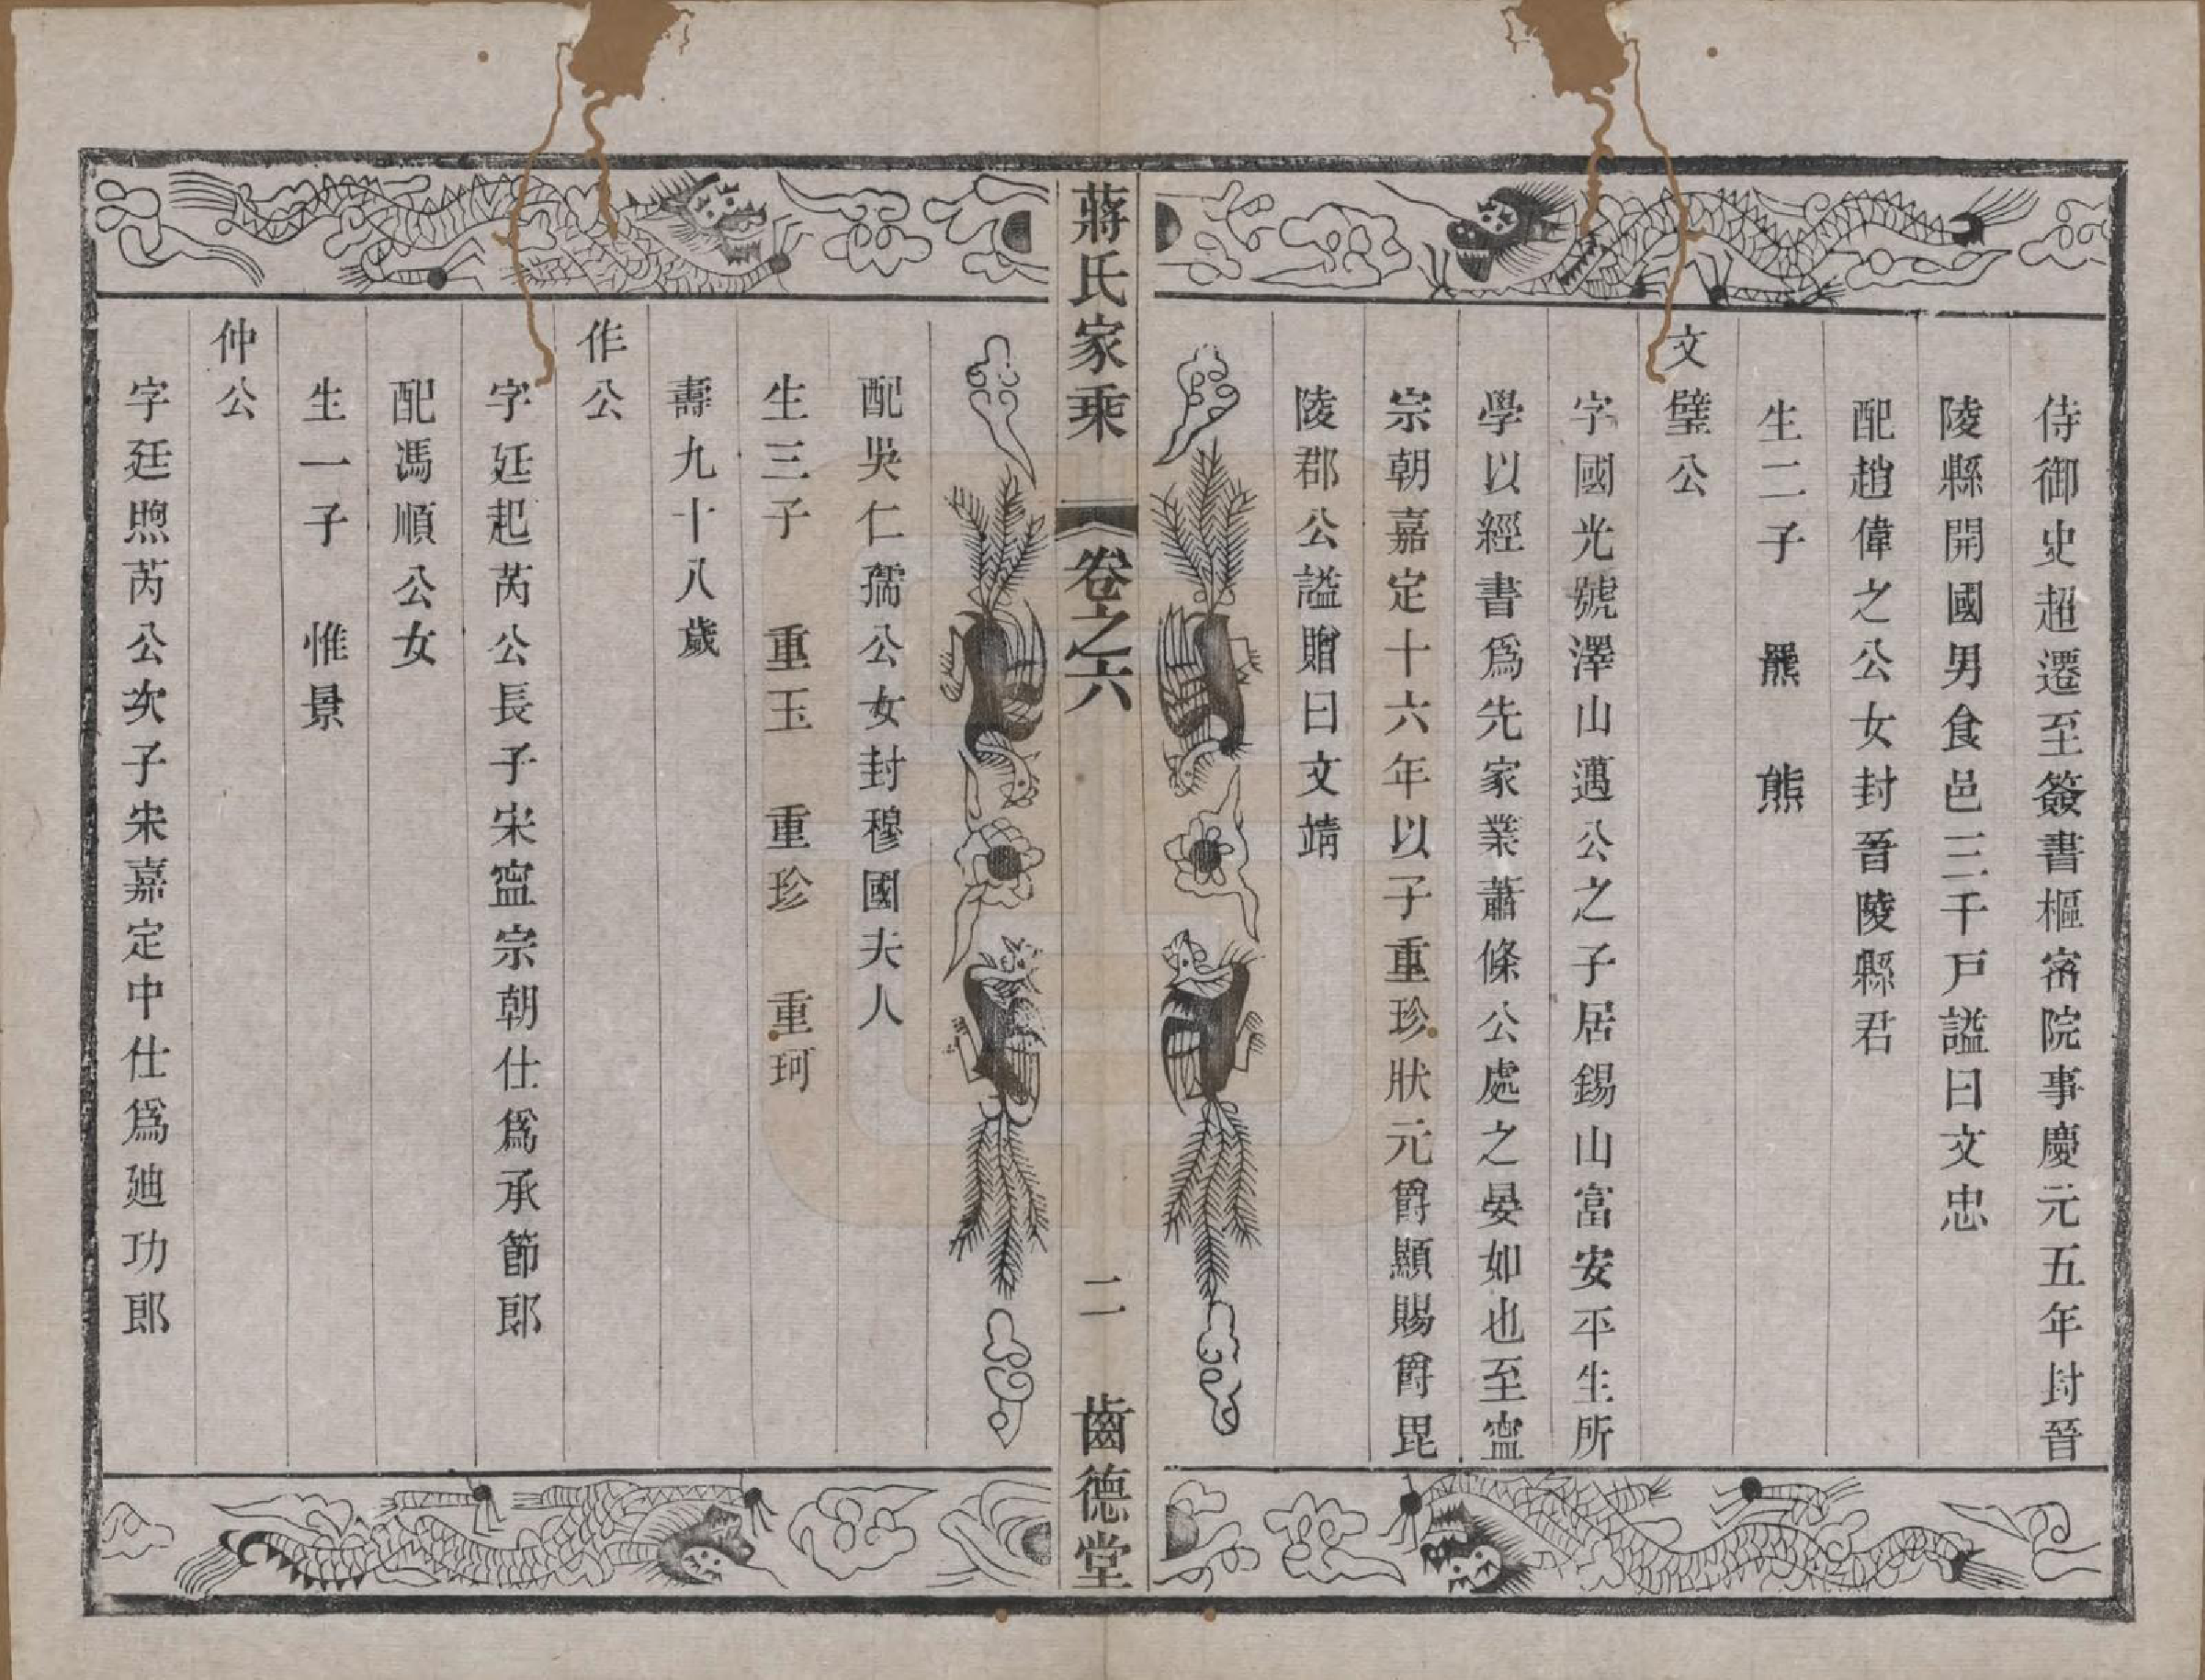 侍御史超遷至簽書樞密院事慶元五年封晉
陵縣開國男食邑三千戸謚曰文忠
配趙偉之公女封晉陵縣君
生二子　羆　熊
文璧公
字國光號澤山邁公之子居錫山富安平生所
學以經書爲先家業蕭條公處之晏如也至寍
宗朝嘉定十六年以子重珍狀元爵顯賜爵毘
陵郡公謚贈曰文靖
蔣氏家乘　卷之六　二　齒德堂
配吳仁孺公女封穆國夫人
生三子　重玉　重珍　重珂
壽九十八歲
作公
字廷起芮公長子宋寍宗朝仕爲承節郎
配馮順公女
生一子　惟景
仲公
字廷煦芮公次子宋嘉定中仕爲廸功郎